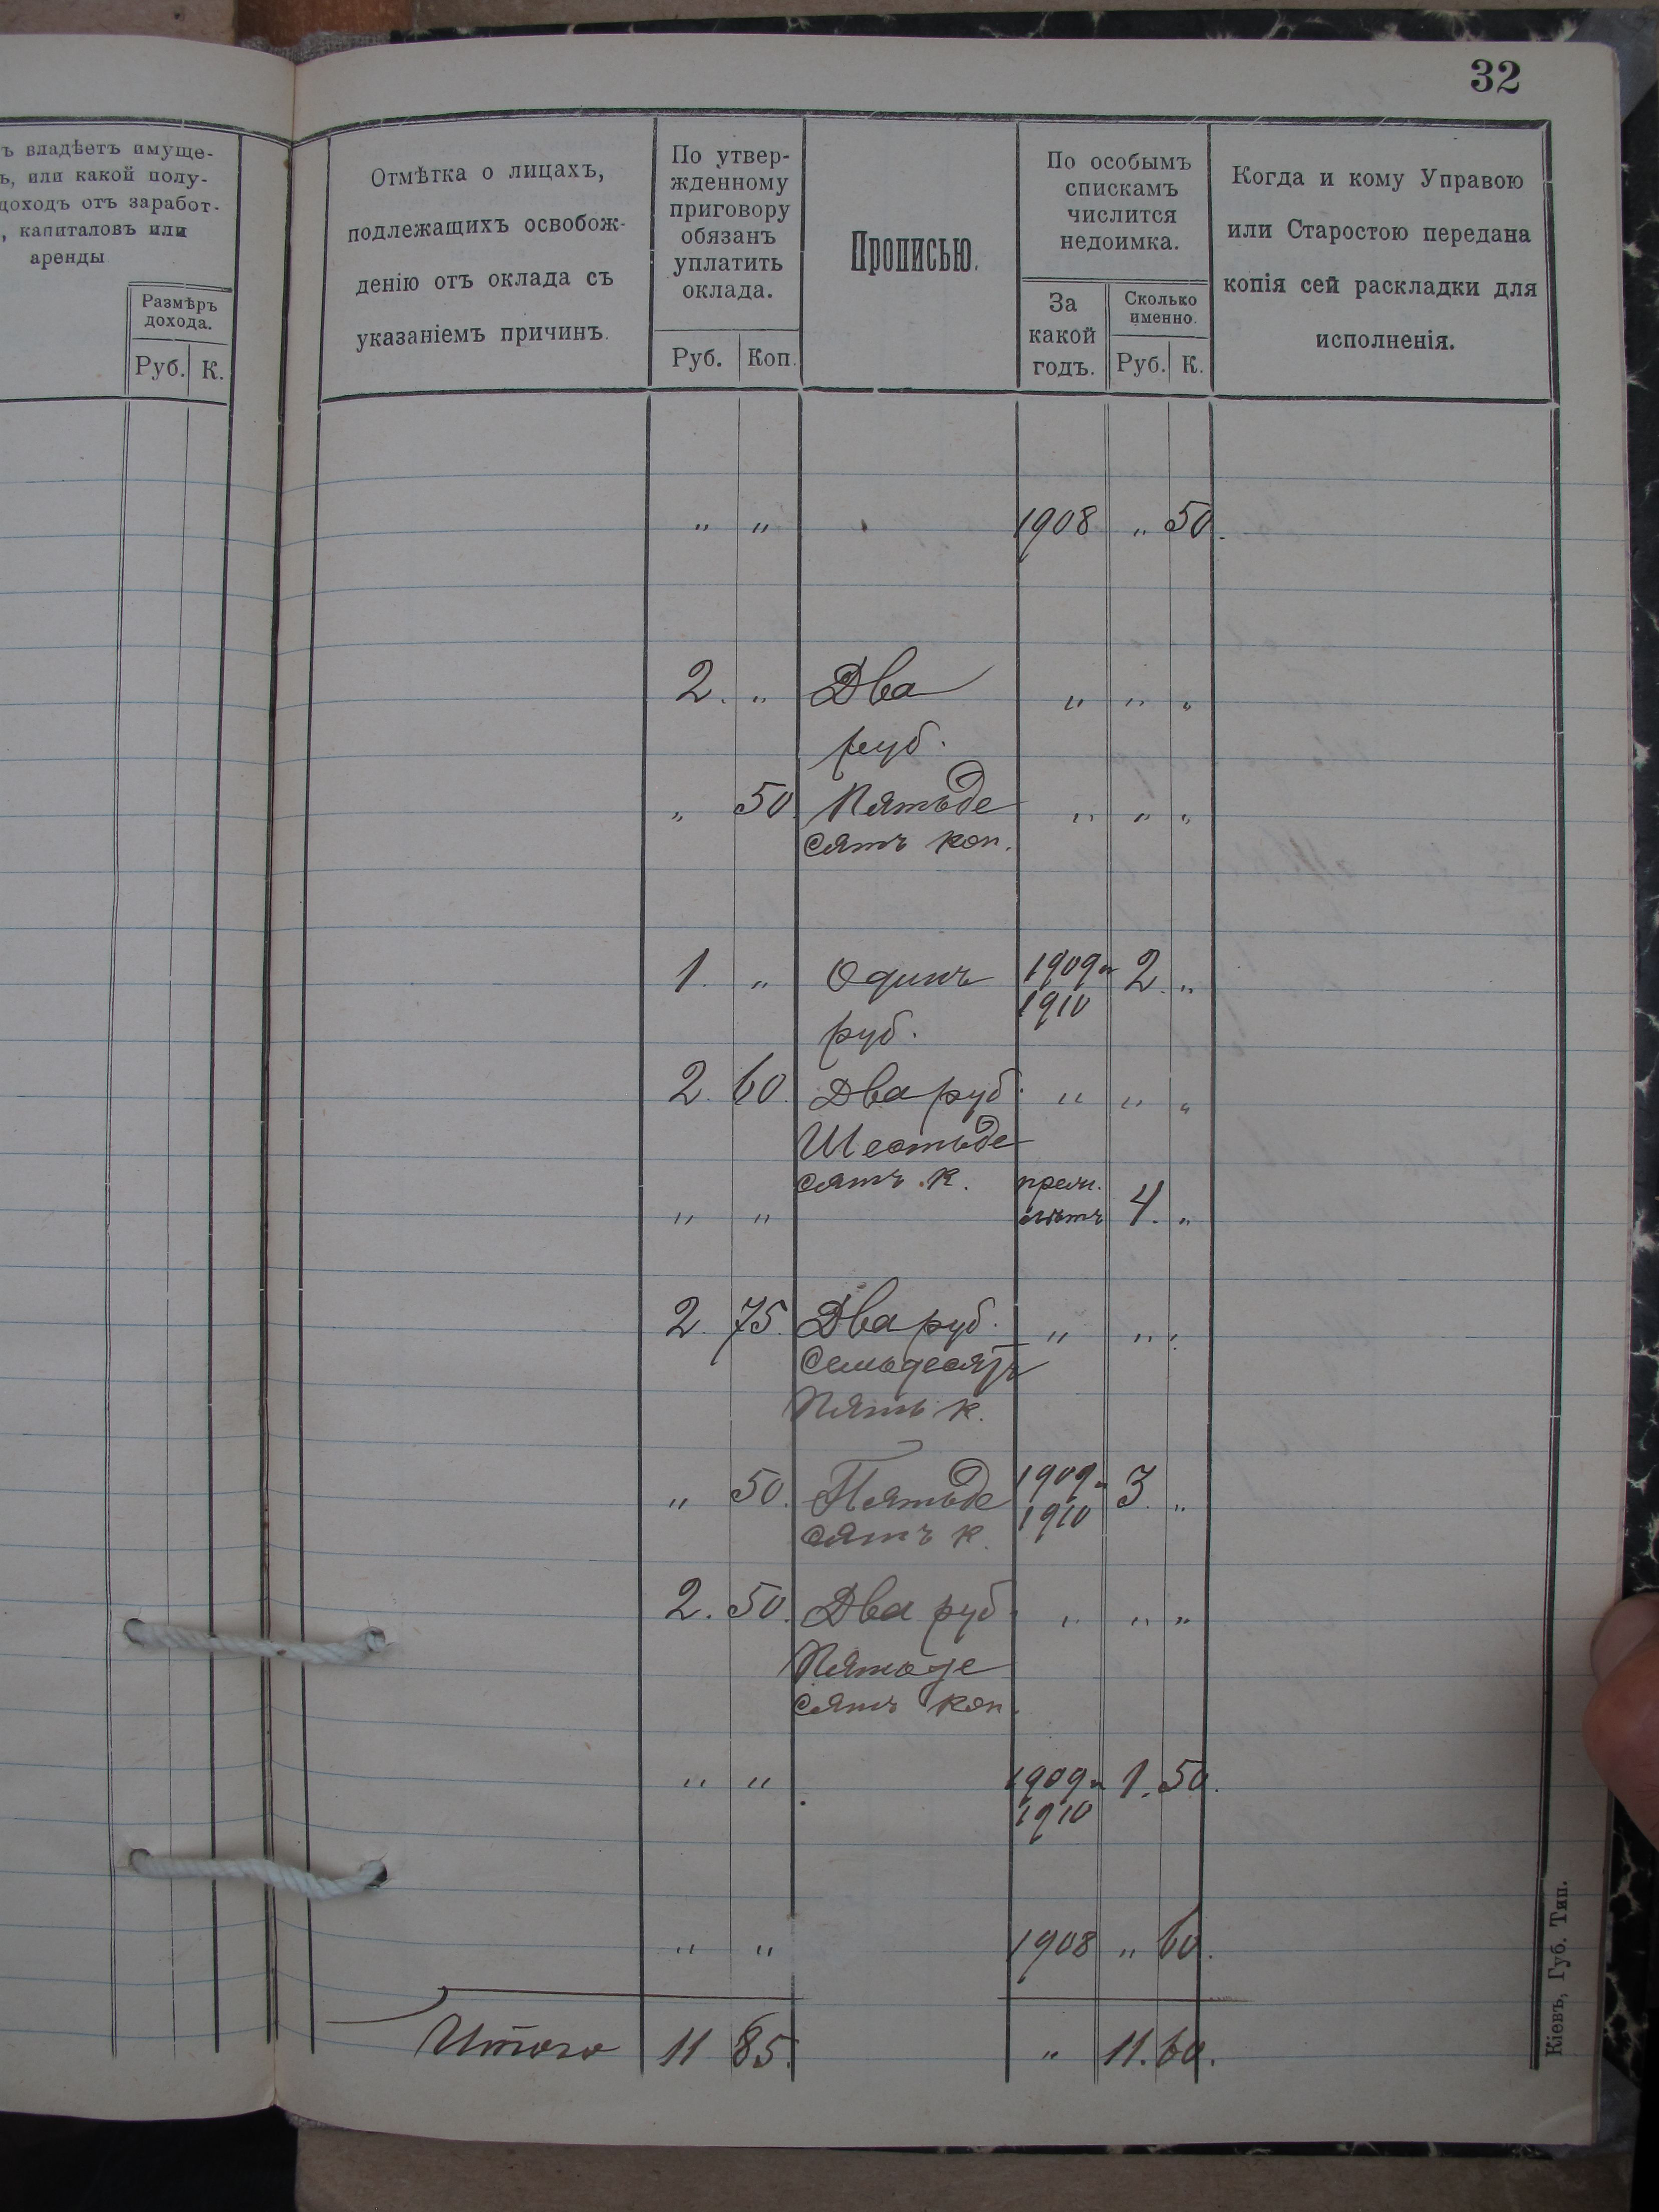 32
ъ владѣетъ имуще-
ь, или какой полу-
доходъ отъ заработ-
, капиталовъ или
аренды
Размѣръ
дохода.
Руб. К.
Отмѣтка о лицахъ,
подлежащихъ освобож-
денію отъ оклада съ
указаніемъ причинъ.
По утвер-
жденному
приговору
обязанъ
уплатить
оклада.
Руб. Коп.
Прописью.
По особымъ
спискамъ
числится
недоимка.
За
какой
годъ.
Сколько
именно.
Руб. К.
Когда и кому Управою
или Старостою передана
копія сей раскладки для
исполненія.
„ „ 1908 „ 50.
2. „ Два „ „ „
руб.
„ 50. Пятьде „ „ „
сятъ коп.
1. „ Одинъ 1909 и 2. „
1910
руб.
2. 60. Два руб. „ „ „
Шестьде
сятъ к. прош.
„ „ лѣтъ 4. „
2. 75. Два руб. „ „ „
Семьдесятъ
Пять к.
„ 50. Пятьде 1909 и 3. „
1910
сятъ к.
2. 50. Два руб. „ „ „
Пятьде
сятъ коп.
„ „ 1909 и 1. 50.
1910
„ „ 1908 „ 60.
Итого 11 85. „ 11. 60.
Кіевъ, Губ. Тип.